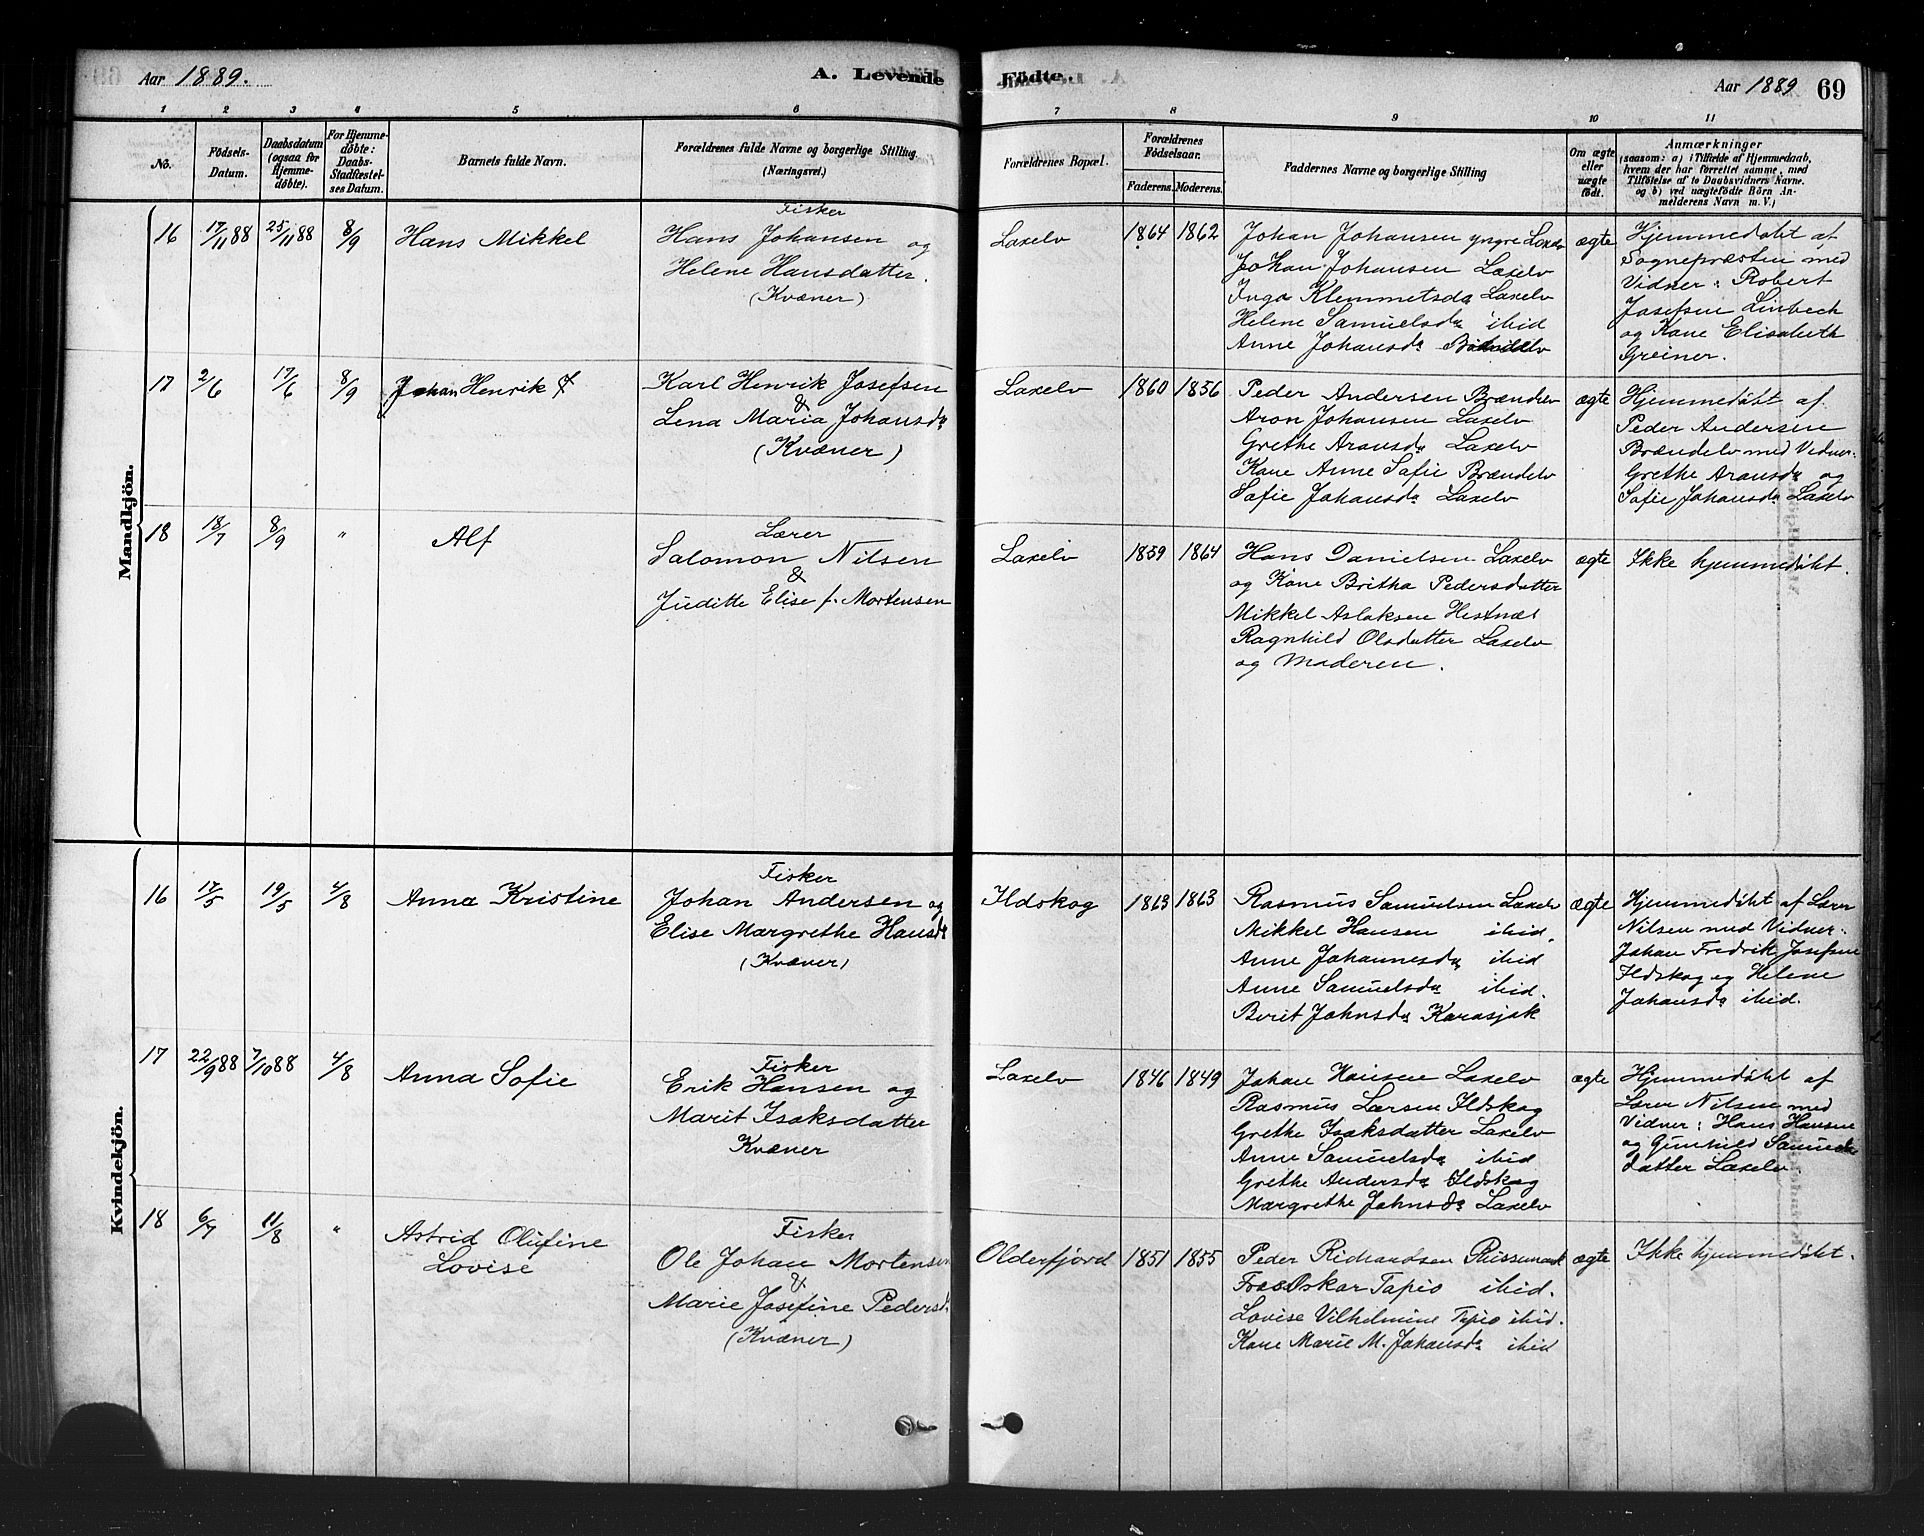 Aar 1889.
A. Levende
1 2 3 4 5 6
No.
Födsels-
Datum.
Daabsdatum
(ogsaa för
Hjemme-
döbte).
For Hjemme-
döbte:
Daabs-
Stadfæstel-
ses Datum.
Barnets fulde Navn.
Forældrenes fulde Navne og borgerlige Stilling
(Næringsvei.)
Mandkjön.
16 17/11 88 25/11 88 8/9 Hans Mikkel
Fisker
Hans Johansen og
Helene Hansdatter.
(Kvæner)
17 2/6 17/6 8/9 Johan Henrik
Karl Henrik Josefsen
&
Lena Maria Johansda
(Kvæner)
18 18/7 8/9 " Alf
Lærer
Salomon Nilsen
&
Juditte Elise f. Mortensen
Kvindekjön.
16 17/5 19/5 4/8 Anna Kristine
Fisker
Johan Andersen og
Elise Margrethe Hansda
(Kvæner)
17 22/9 88 7/10 88 4/8 Anna Sofie
Fisker
Erik Hansen og
Marit Isaksdatter
Kvæner
18 6/7 11/8 " Astrid Olufine
Lovise
Fisker
Ole Johan Mortensen
&
Marie Josefine Pedersd.
(Kvæner)
Födte.
Aar 1889 69
7 8 9 10 11
Forældrenes Bopæl.
Forældrenes
Födselsaar.
Faderens. Moderens.
Faddernes Navne og borgerlige Stilling
Om ægte
eller
uægte
födt.
Anmærkninger
(saasom: a) i Tilfælde af Hjemmedaab,
hvem der har forrettet samme, med
Tilföielse af to Daabsvidners Navne.
og b) ved uægtefödte Börn An-
melderens Navn m. V.)
Laxelv 1864 1862
Johan Johansen yngre Laxelv
Johan Johansen Laxelv
Inga Klemmetsda Laxelv
Helene Samuelsda ibid
Anne Johansda
ægte
Hjemmedøbt af
Sognepræsten med
Vidner: Robert
Josefsen Linbeck
og Kone Elisabeth
Greiner.
Laxelv 1860 1856
Peder Andersen Brændelv
Aron Johansen Laxelv
Grethe Aronsda Laxelv
Kone Anne Sofie Brændelv
Sofie Johansda Laxelv
ægte
Hjemmedøbt af
Peder Andersen
Brændelv med Vidner:
Grethe Aronsda og
Sofie Johansda Laxelv
Laxelv 1859 1864
Hans Danielsen Laxelv
og Kone Britha Pedersdatter
Mikkel Aslaksen Hestnæs
Ragnhild Olsdatter Laxelv
og Moderen.
ægte
Ikke hjemmedøbt.
Ildskog 1863 1863
Rasmus Samuelsen Laxelv
Mikkel Hansen ibid.
Anne Johannesda ibid
Anne Samuelsda ibid.
Berit Johnsda Karasjok
ægte
Hjemmedøbt af Lærer
Nilsen med Vidner:
Johan Fredrik Josefsen
Ildskog og Helene
Johansda ibid.
Laxelv 1846 1849
Johan Hansen Laxelv
Rasmus Larsen Ildskog
Grethe Isaksdatter Laxelv
Anne Samuelsda ibid
Grethe Andersda Ildskog
Margrethe Johnsda Laxelv
ægte
Hjemmedøbt af
Lærer Nilsen med
Vidner: Hans Hansen
og Gunhild Samuels
datter Laxelv.
Olderfjord 1851 1855
Peder Richardsen Russemark
Oskar Tapio ibid.
Lovise Vilhelmine Tapio ibid.
Kone Marie M. Johansda ibid
ægte
Ikke hjemmedøbt.